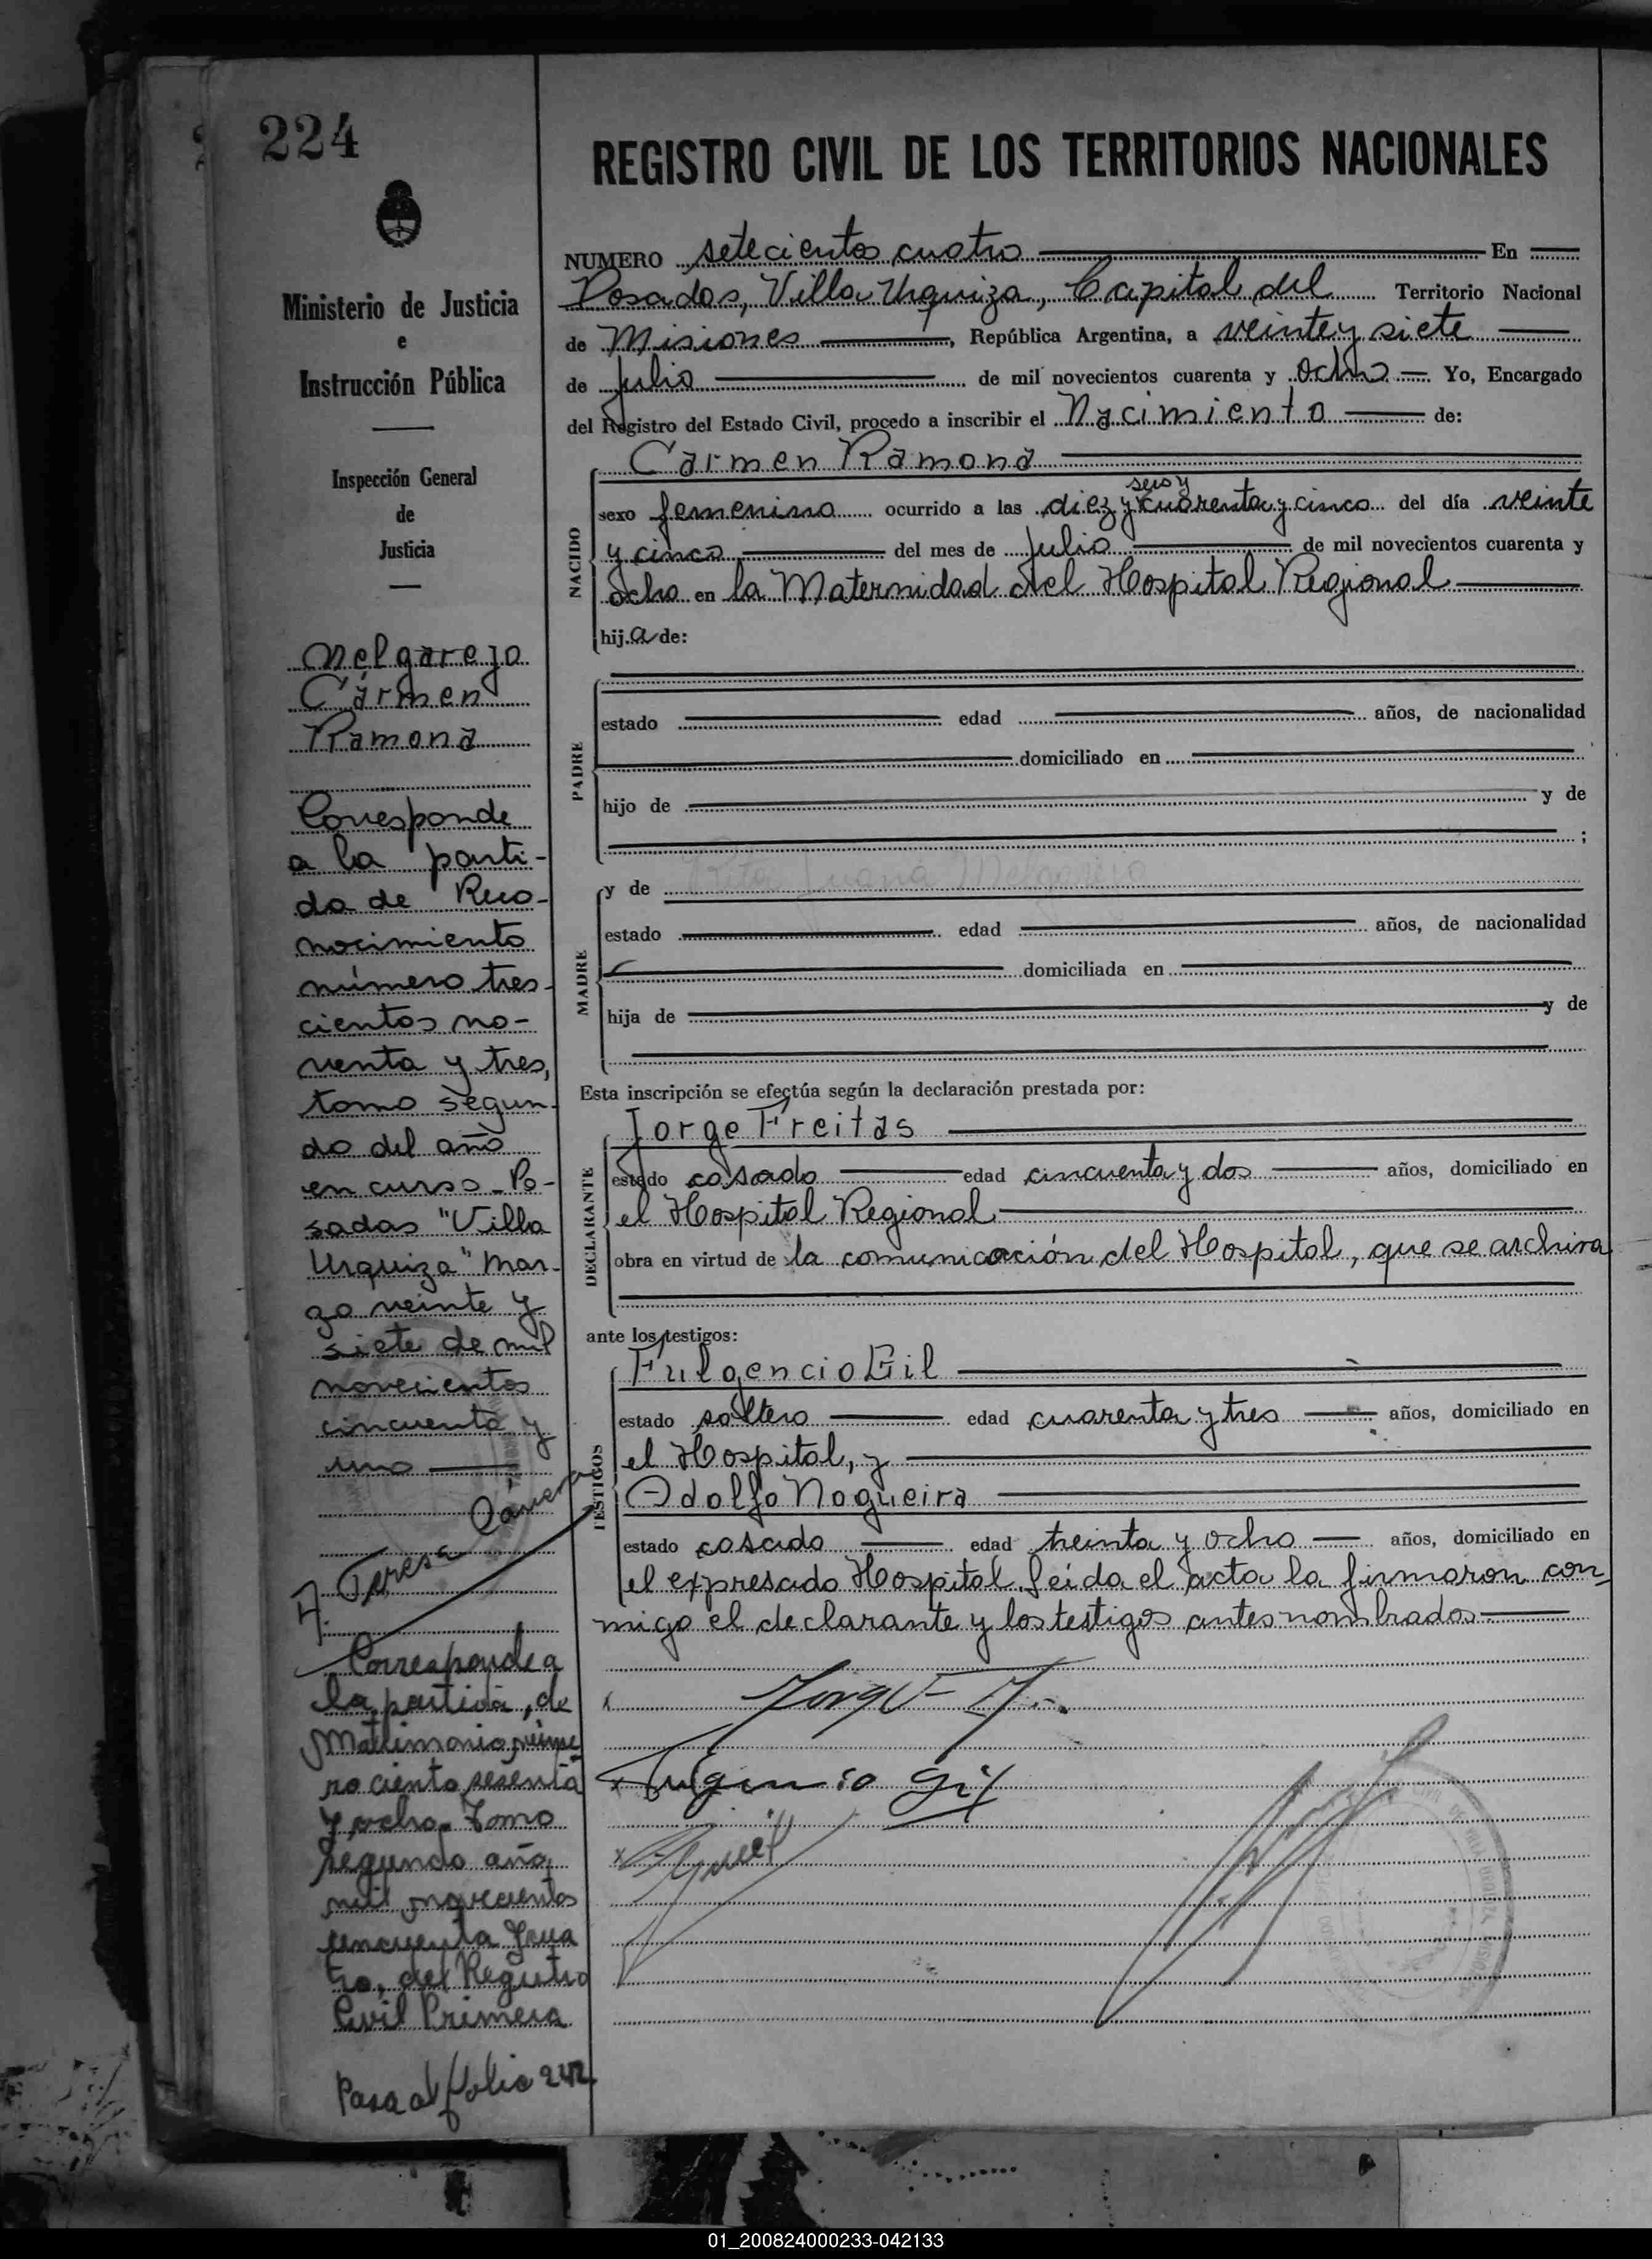 224
REGISTRO CIVIL DE LOS TERRITORIOS NACIONALES
Ministerio de Justicia
e
Instrucción Pública
Inspección General
de
Justicia
Melgarejo
Cármen
Ramona
Corresponde
a la parti-
da de Reco-
nocimiento
número tres-
cientos no-
venta y tres,
tomo segun-
do del año
en curso - Po-
sadas "Villa
Urquiza" Mar-
zo veinte y
siete de mil
novecientos
cincuenta y
uno
Teresa
Corresponde a
la partida, de
Matrimonio núme
ro ciento sesenta
y ocho. Tomo
segundo año
mil novecientos
cincuenta y cua
tro, del Registro
Civil Primera
Pasa al folio 242
NUMERO setecientos cuatro En
Posadas, Villa Urquiza, Capital del Territorio Nacional
de Misiones, República Argentina, a veinte y siete
de Julio de mil novecientos cuarenta y ocho Yo, Encargado
del Registro del Estado Civil, procedo a inscribir el Nacimiento de:
NACIDO
Cármen Ramona
seis y
sexo femenino ocurrido a las diez y cuarenta y cinco del día veinte
y cinco del mes de Julio de mil novecientos cuarenta y
ocho en la Maternidad del Hospital Regional
hija de:
PADRE
estado edad años, de nacionalidad
domiciliado en
hijo de y de
;
MADRE
y de Rita Juana Melgarejo
estado edad años, de nacionalidad
domiciliada en
hija de y de
Esta inscripción se efectúa según la declaración prestada por:
DECLARANTE
Jorge Freitas
estado casado edad cincuenta y dos años, domiciliado en
el Hospital Regional
obra en virtud de la comunicación del Hospital, que se archiva
ante los testigos:
TESTIGOS
Fulgencio Gil
estado soltero edad cuarenta y tres años, domiciliado en
el Hospital, y
Adolfo Nogueira
estado casado edad treinta y ocho años, domiciliado en
el expresado Hospital. Leída el acta la firmaron con-
migo el declarante y los testigos antes nombrados
Jorge F
x Fulgencio Gil
x
01_200824000233-042133